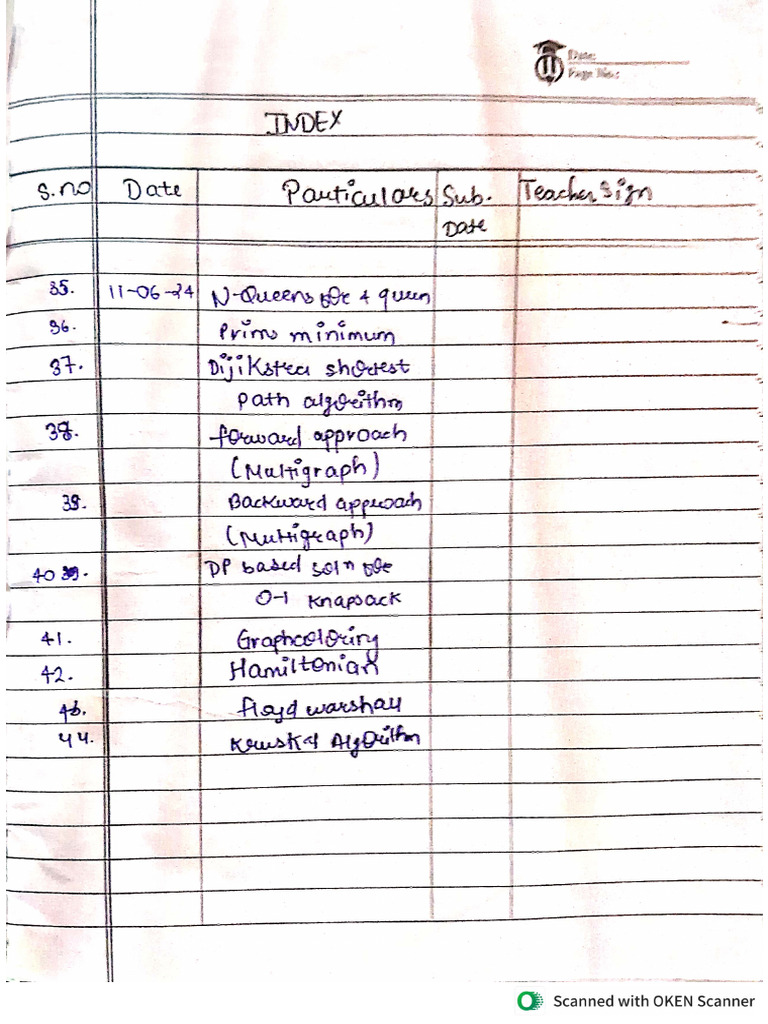 Date:
Page No.:
INDEX
S.no Date Particulars Sub. Teacher Sign
Date
35. 11-06-24 N-Queens for 4 queen
36. Prims minimum
37. Dijikstra shortest
path algorithm
38. forward approach
(Multigraph)
39. Backward approach
(Multigraph)
40 DP based soln for
0-1 Knapsack
41. Graphcoloring
42. Hamiltonian
43. floyd warshall
44. Kruskal Algorithm
Scanned with OKEN Scanner